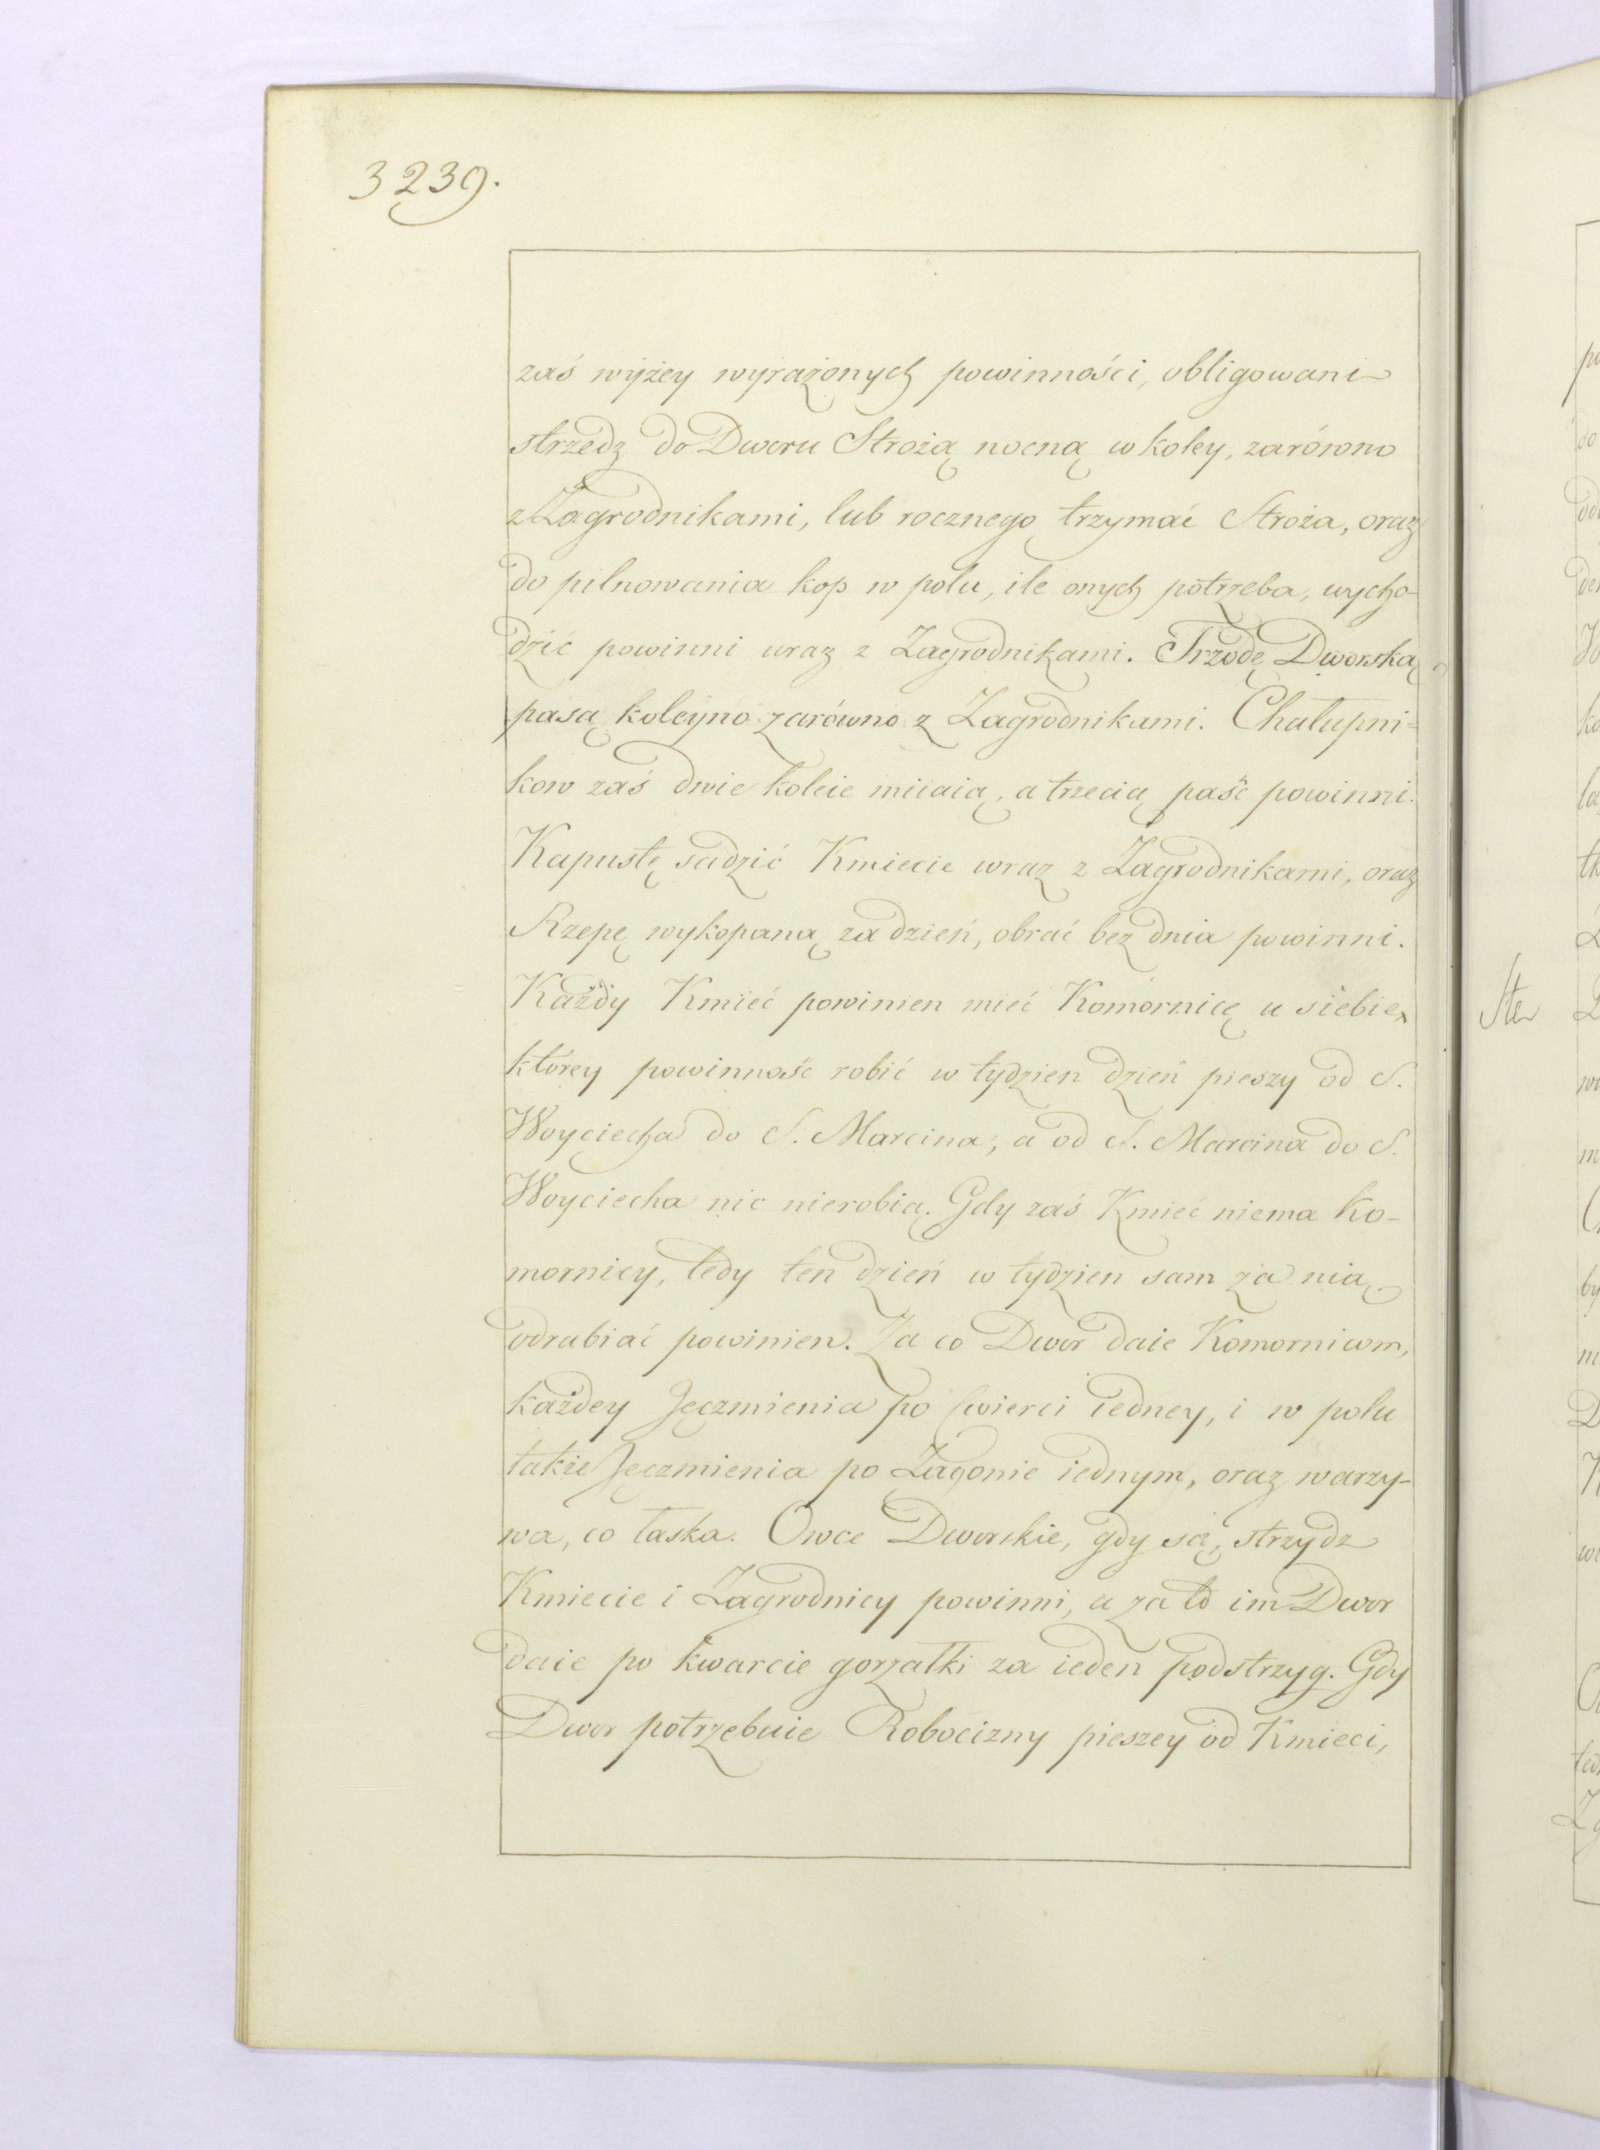 3239.
zaś wyżey wyrażonych powinności, obligowani
strzedz do Dworu Strożą nocną w koley, zarówno
z Zagrodnikami, lub rocznego trzymać Stroża, oraz
do pilnowania kop w polu, ile onych potrzeba, wycho-
dzić powinni wraz z Zagrodnikami. Trzodę Dworską
pasą koleyno zarówno z Zagrodnikami. Chałupni-
kow zaś dwie koleie miiaią, a trzecią paść powinni.
Kapustę sadzić Kmiecie wraz z Zagrodnikami, oraz
Rzepę wykopaną za dzień, obrać bez dnia powinni.
Każdy Kmieć powinien mieć Komornicę u siebie,
którey powinność robić w tydzien dzień pieszy od S.
Woyciecha do S. Marcina, a od S. Marcina do S.
Woyciecha nic nierobią. Gdy zaś Kmieć niema Ko-
mornicy, tedy ten dzień w tydzien sam za nią
odrabiać powinien. Za co Dwor daie Komornicom,
każdey Jęczmienia po ćwierci iedney, i w polu
takie Jęczmienia po Zagonie iednym, oraz warzy-
wa, co łaska. Owce Dworskie, gdy są, strzydz
Kmiecie i Zagrodnicy powinni, a za to im Dwor
daie po kwarcie gorzałki za ieden podstrzyg. Gdy
Dwor potrzebuie Robocizny pieszey od Kmieci,